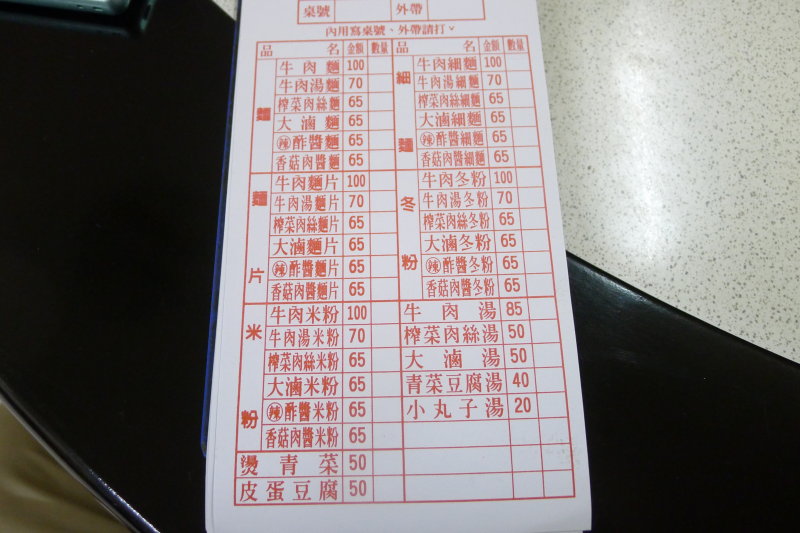 桌號 外帶
內用寫桌號、外帶請打✓
品名 金額 數量 品名 金額 數量
麵
牛肉麵 100
牛肉湯麵 70
榨菜肉絲麵 65
大滷麵 65
辣酢醬麵 65
香菇肉醬麵 65
細麵
牛肉細麵 100
牛肉湯細麵 70
榨菜肉絲細麵 65
大滷細麵 65
辣酢醬細麵 65
香菇肉醬細麵 65
麵片
牛肉麵片 100
牛肉湯麵片 70
榨菜肉絲麵片 65
大滷麵片 65
辣酢醬麵片 65
香菇肉醬麵片 65
冬粉
牛肉冬粉 100
牛肉湯冬粉 70
榨菜肉絲冬粉 65
大滷冬粉 65
辣酢醬冬粉 65
香菇肉醬冬粉 65
米粉
牛肉米粉 100
牛肉湯米粉 70
榨菜肉絲米粉 65
大滷米粉 65
辣酢醬米粉 65
香菇肉醬米粉 65
牛肉湯 85
榨菜肉絲湯 50
大滷湯 50
青菜豆腐湯 40
小丸子湯 20
燙青菜 50
皮蛋豆腐 50